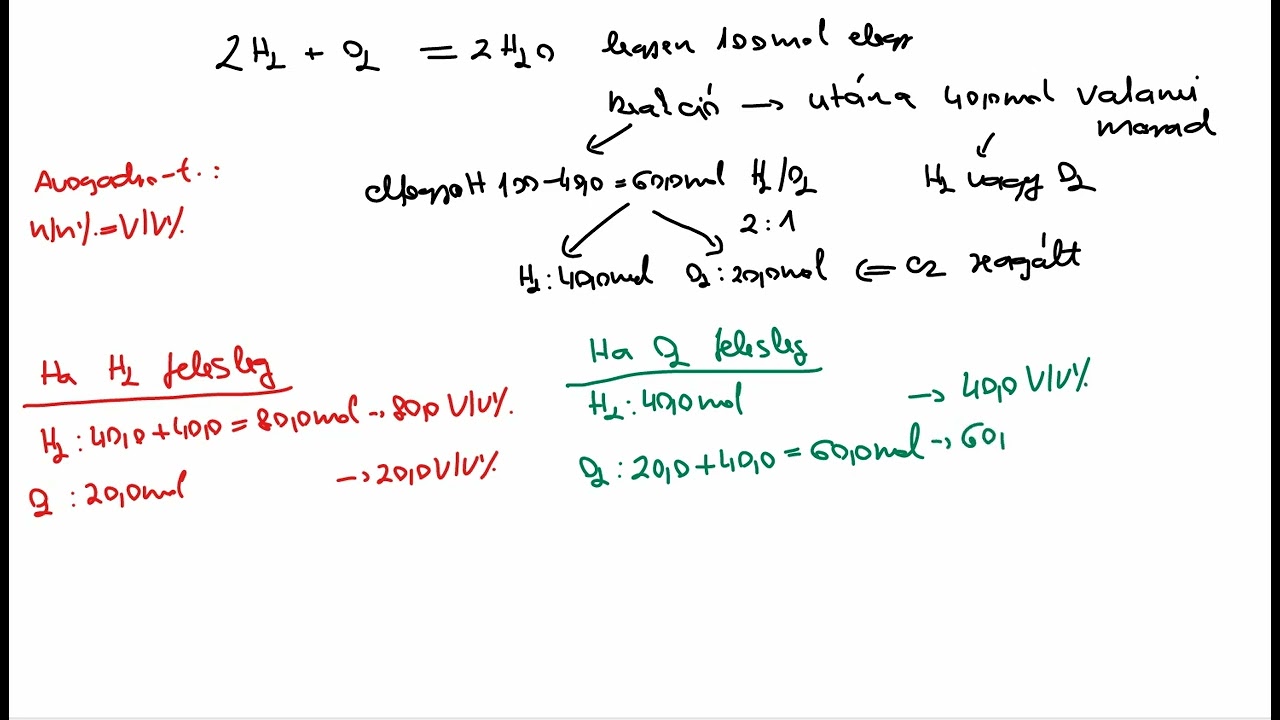 2H₂ + O₂ = 2H₂O legyen 100 mol elegy
Reakció → utána 40,0 mol valami
marad
Avogadro-t. :
n/n% = V/V%
elfogyott 100-40,0 = 60,0 mol H₂/O₂
H₂ vagy O₂
2 : 1
H₂ : 40,0 mol O₂ : 20,0 mol ⇐ ez reagált
Ha H₂ felesleg
H₂ : 40,0 + 40,0 = 80,0 mol → 80,0 V/V%
O₂ : 20,0 mol → 20,0 V/V%
Ha O₂ felesleg
H₂ : 40,0 mol → 40,0 V/V%
O₂ : 20,0 + 40,0 = 60,0 mol → 60,